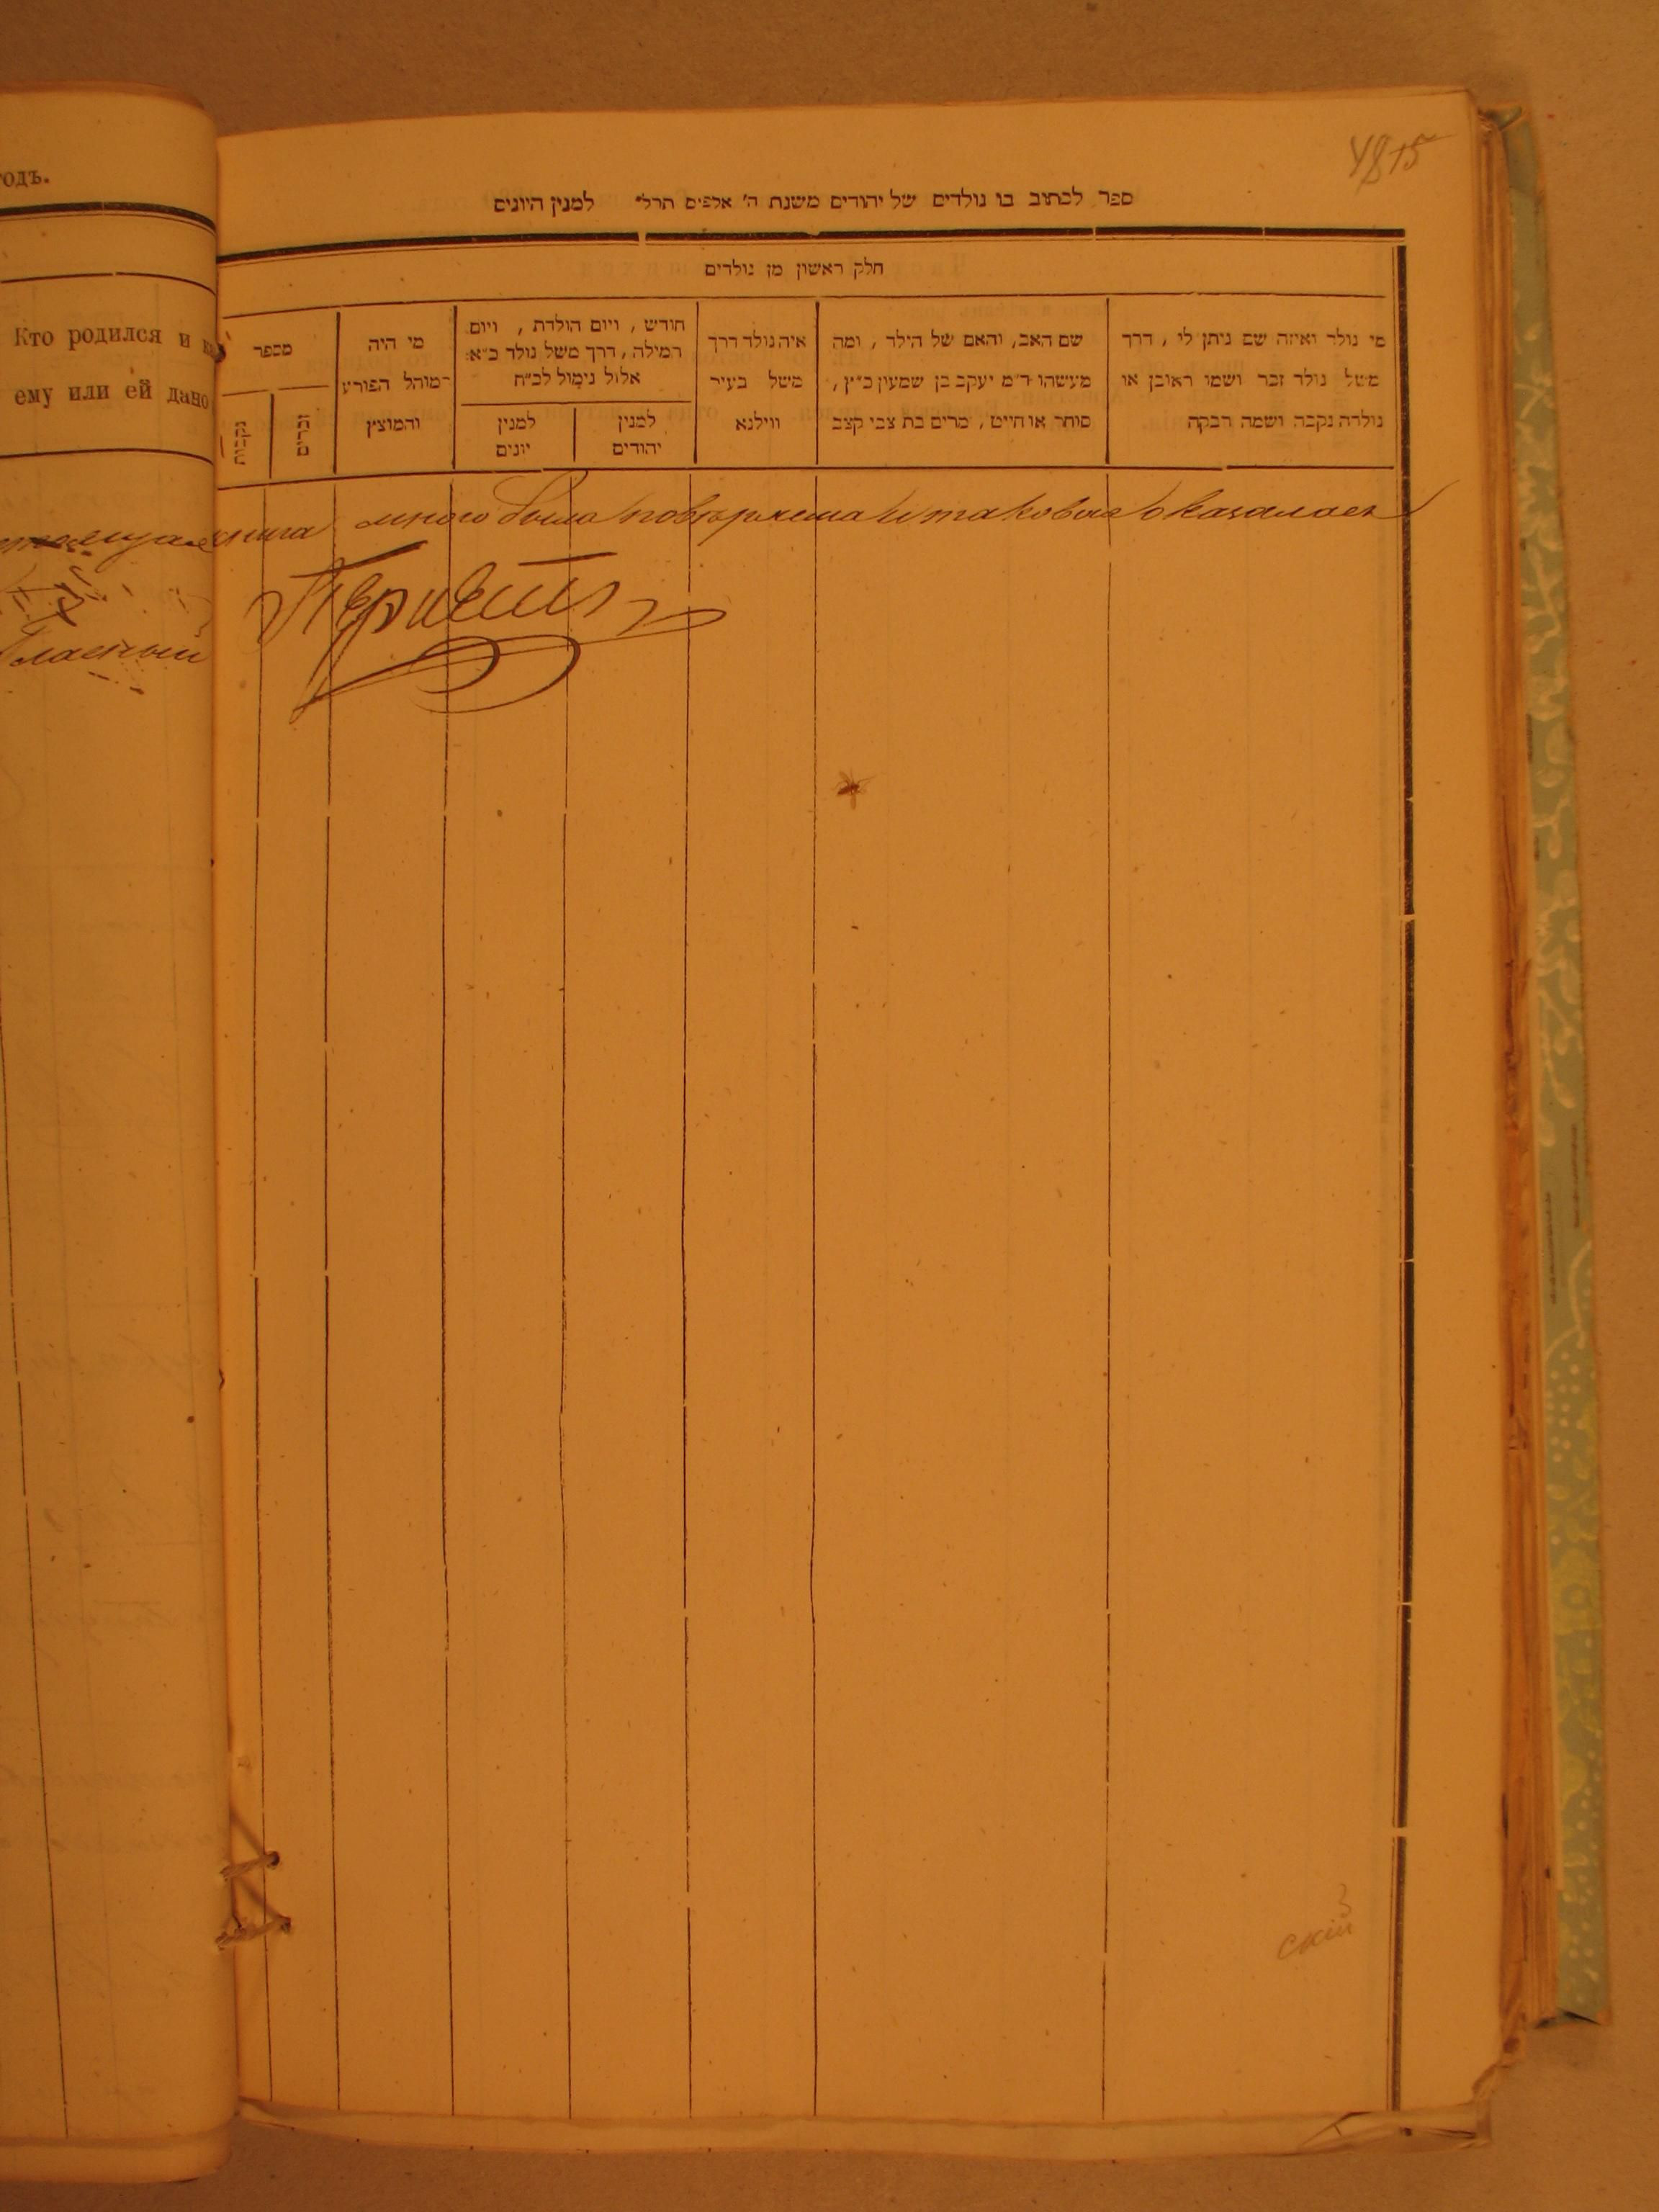 4815
одъ.
ספר לכתוב בו נולדים של יהודים משנת ה' אלפים תרל" למנין היונים
חלק ראשון מן נולדים
Кто родился и
ему или ей дано
מי נולד ואיזה שם ניתן לו , דרך
משל נולד זכר ושמו ראובן או
נולדה נקבה ושמה רבקה
שם האב, והאם של הילד , ומה
מעשהו ד"מ יעקב בן שמעון כ"ץ ,
סוחר או חייט , מרים בת צבי קצב
איה נולד דרך
משל בעיר
ווילנא
חודש , ויום הולדת , ויום
המילה , דרך משל נולד כ"א
אלול נימול לכ"ח
למנין
יהודים
למנין
יונים
מי היה
המוהל הפורע
והמוצץ
מספר
זכרים
נקבות
книга мною была повѣряема и таковая оказалась
Гласный
скій
3